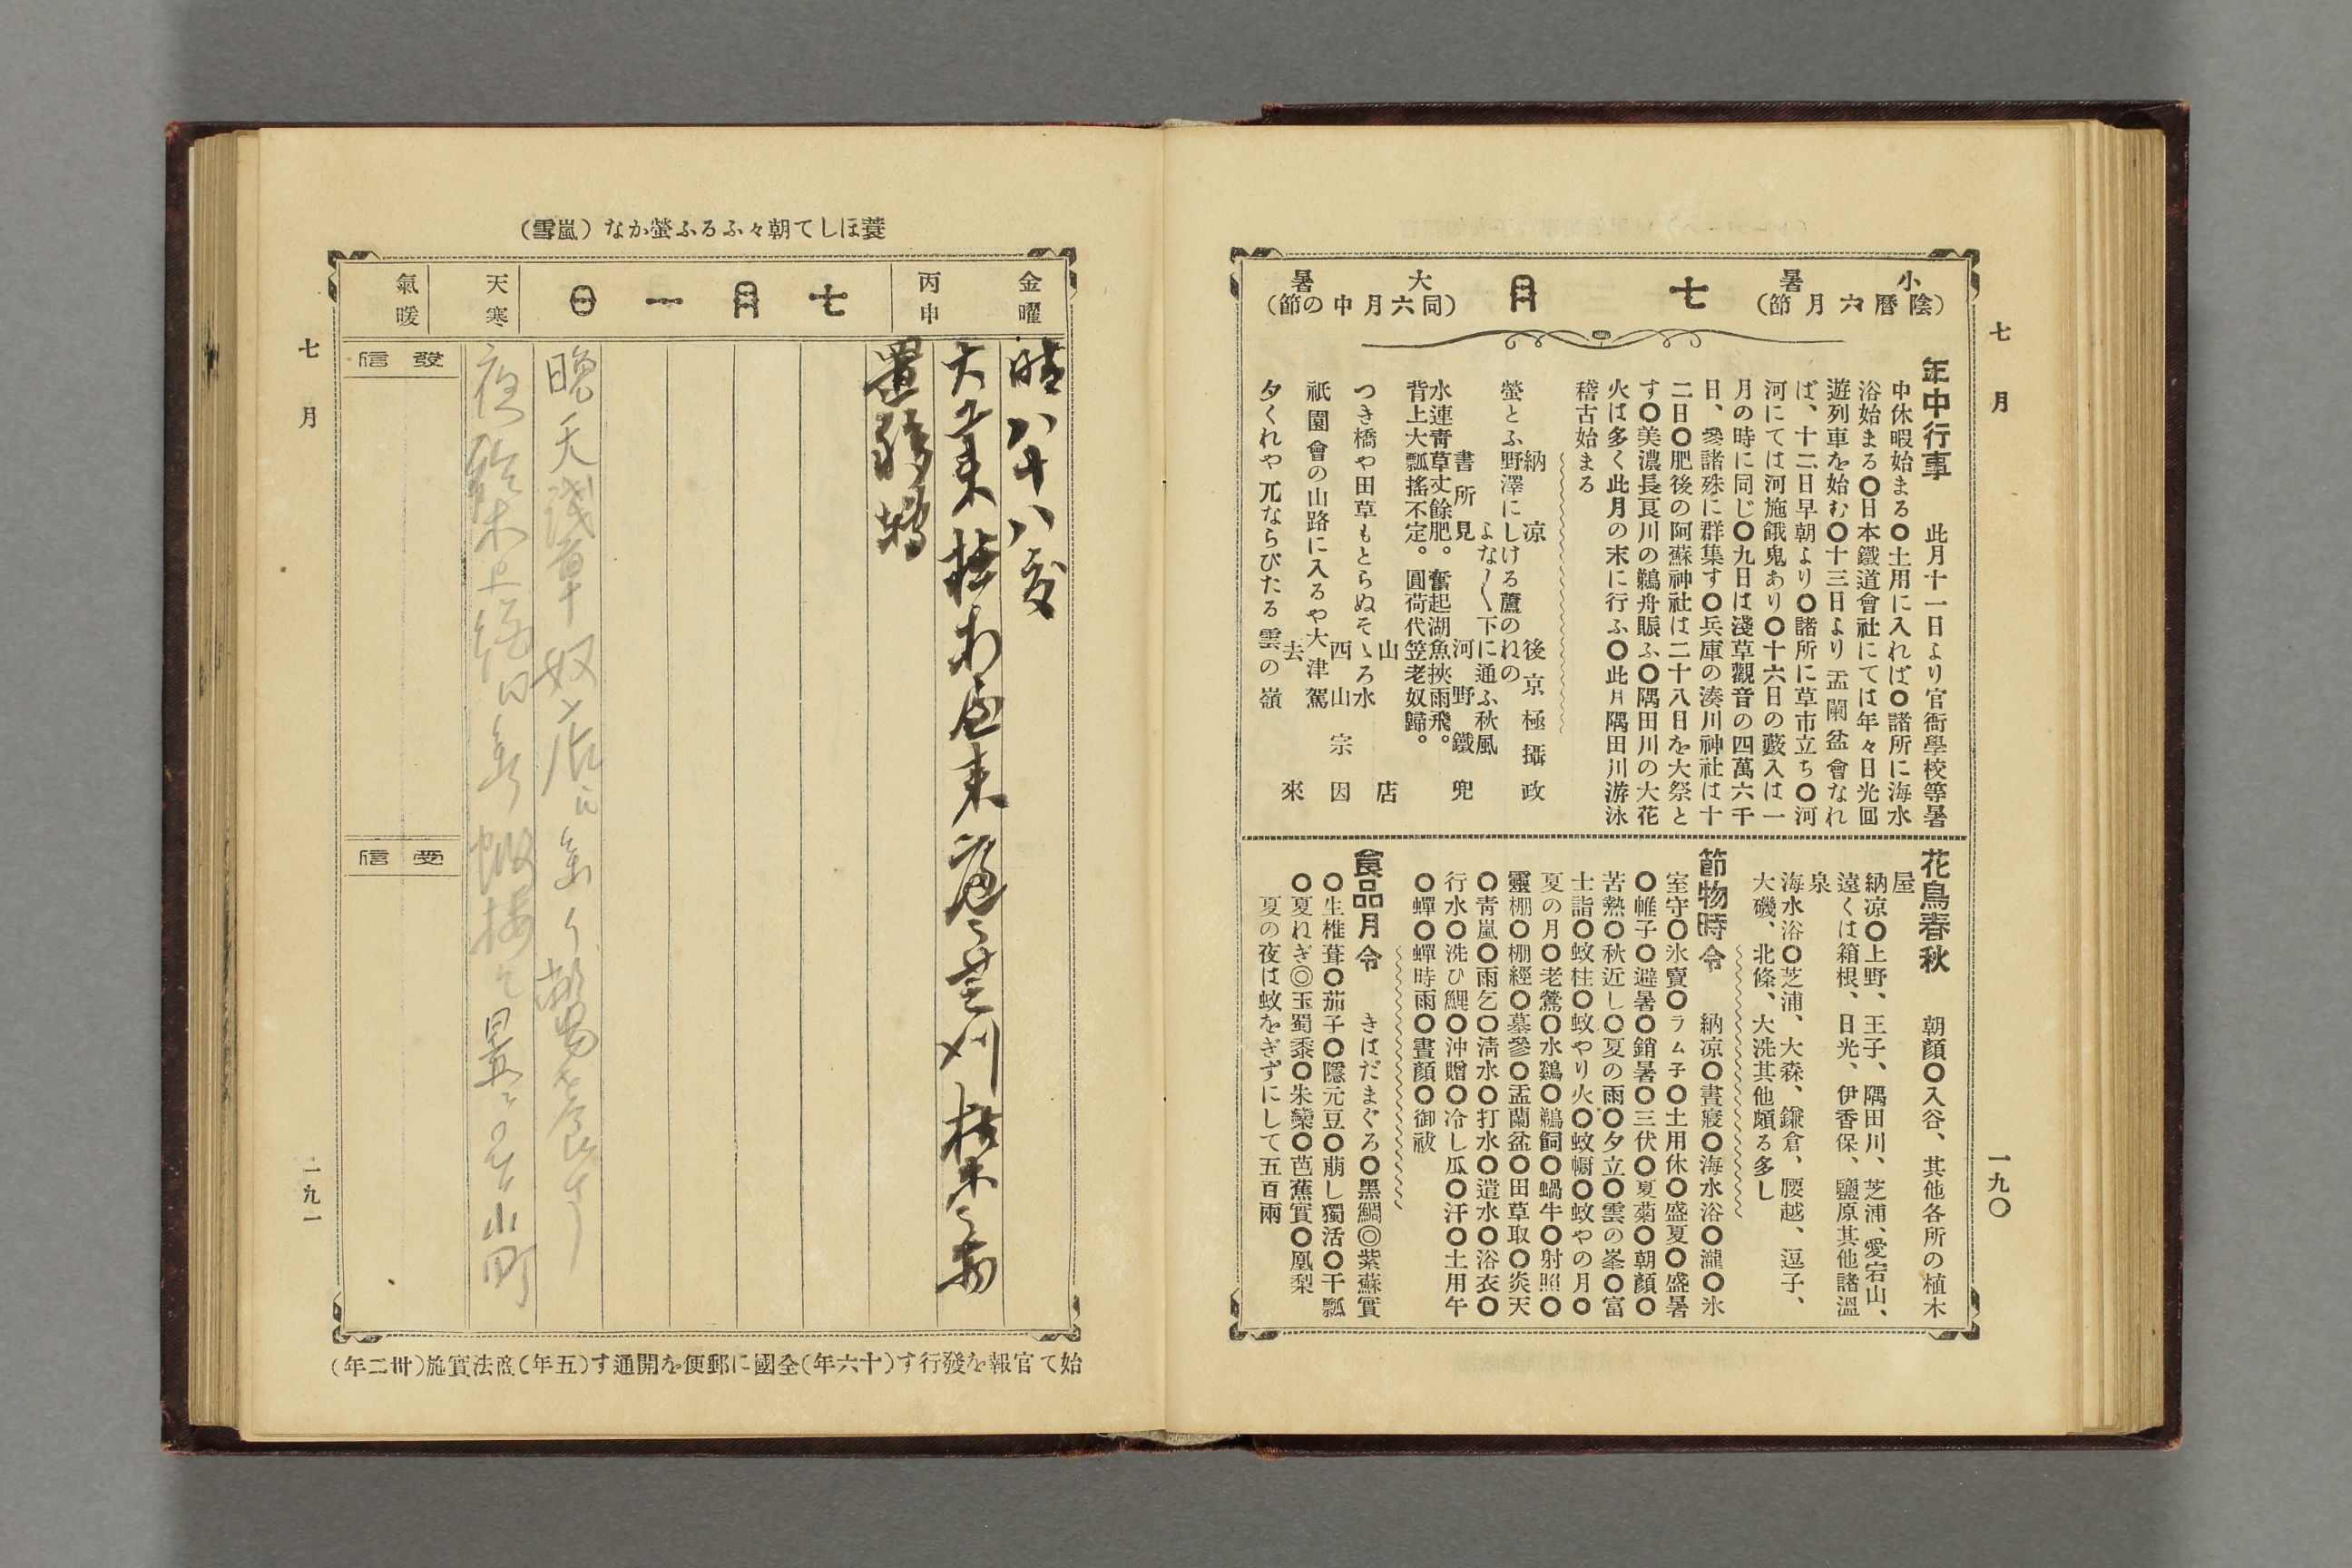 七月
一九〇
小暑
(陰曆六月節)
七月
大暑
(同六月中の節)
年中行事　此月十一日より官衙學校等暑
中休暇始まる〇土用に入れば〇諸所に海水
浴始まる〇日本鐵道會社にては年々日光回
遊列車を始む〇十三日より盂蘭盆會なれ
ば、十二日早朝より〇諸所に草市立ち〇河
河にては河施餓鬼あり〇十六日の藪入は一
月の時に同じ〇九日は淺草觀音の四萬六千
日、參諸殊に群集す〇兵庫の湊川神社は十
二日〇肥後の阿蘇神社は二十八日を大祭と
す〇美濃長良川の鵜舟賑ふ〇隅田川の大花
火は多く此月の末に行ふ〇此月隅田川游泳
稽古始まる
納凉　後京極攝政
螢とふ野澤にしける蘆のねの
よな〱下に通ふ秋風
書所見　河野鐵兜
水連靑草丈餘肥。奮起湖魚挾雨飛。
背上大瓢搖不定。圓荷代笠老奴歸。
山店
つき橋や田草もとらぬそゝろ水
西山宗因
祇園會の山路に入るや大津駕
去來
夕くれや兀ならびたる雲の嶺
花鳥春秋　朝顏〇入谷、其他各所の植木
屋
納凉〇上野、王子、隅田川、芝浦、愛宕山、
遠くは箱根、日光、伊香保、鹽原其他諸溫
泉
海水浴〇芝浦、大森、鎌倉、腰越、逗子、
大磯、北條、大洗其他頗る多し
節物時令　納凉〇晝寢〇海水浴〇瀧〇氷
室守〇氷賣〇ラム子〇土用休〇盛夏〇盛暑
〇帷子〇避暑〇銷暑〇三伏〇夏菊〇朝顏〇
苦熱〇秋近し〇夏の雨〇夕立〇雲の峯〇富
士詣〇蚊柱〇蚊やり火〇蚊幮〇蚊やの月〇
夏の月〇老鶯〇水鷄〇鵜飼〇蝸牛〇射照〇
靈棚〇棚經〇墓參〇盂蘭盆〇田草取〇炎天
〇靑嵐〇雨乞〇淸水〇打水〇遣水〇浴衣〇
行水〇洗ひ鯉〇沖膾〇冷し瓜〇汗〇土用午
〇蟬〇蟬時雨〇晝顏〇御祓
食品月令　きはだまぐろ〇黑鯛◎紫蘇實
〇生椎茸〇茄子〇隱元豆〇萠し獨活〇干瓢
〇夏ねぎ◎玉蜀黍〇朱欒〇芭蕉實〇鳳梨
夏の夜は蚊をぎずにして五百兩
蓑ほして朝々ふるふ螢かな(嵐雪)
金曜
丙申
七月一日
天寒
氣暖
晴 八十八度
發信
受信
始て官報を發行す(十六年)全國に郵便を開通す(五年)商法實施(卅二年)
七月
一九一